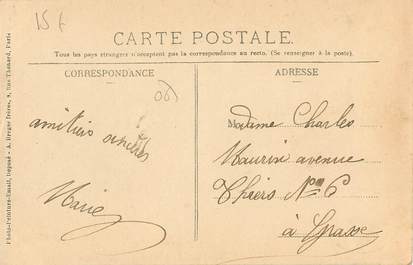 15 f
CARTE POSTALE.
Tous les pays étrangers n'acceptent pas la correspondance au recto. (Se renseigner à la poste).
CORRESPONDANCE
ADRESSE
06
amitiés sincères
Marie
Madame Charles
Maurin avenue
Thiers No 6
à Grasse
Photo-Peinture-Email, Déposé - A. Breger frères, 9, Rue Thénard, Paris